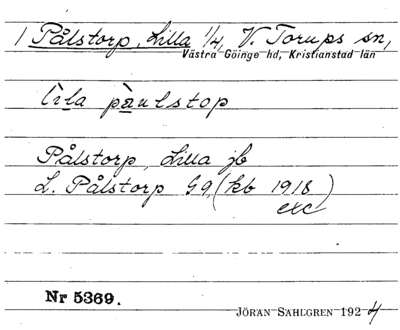 1 Pålstorp, Lilla 1/4, V. Torups sn,
Västra Göinge hd, Kristianstad län
lìla pàulstop
Pålstorp, Lilla jb
L. Pålstorp G9, (kb 1918)
exc
Nr 5369.
JÖRAN SAHLGREN 1924